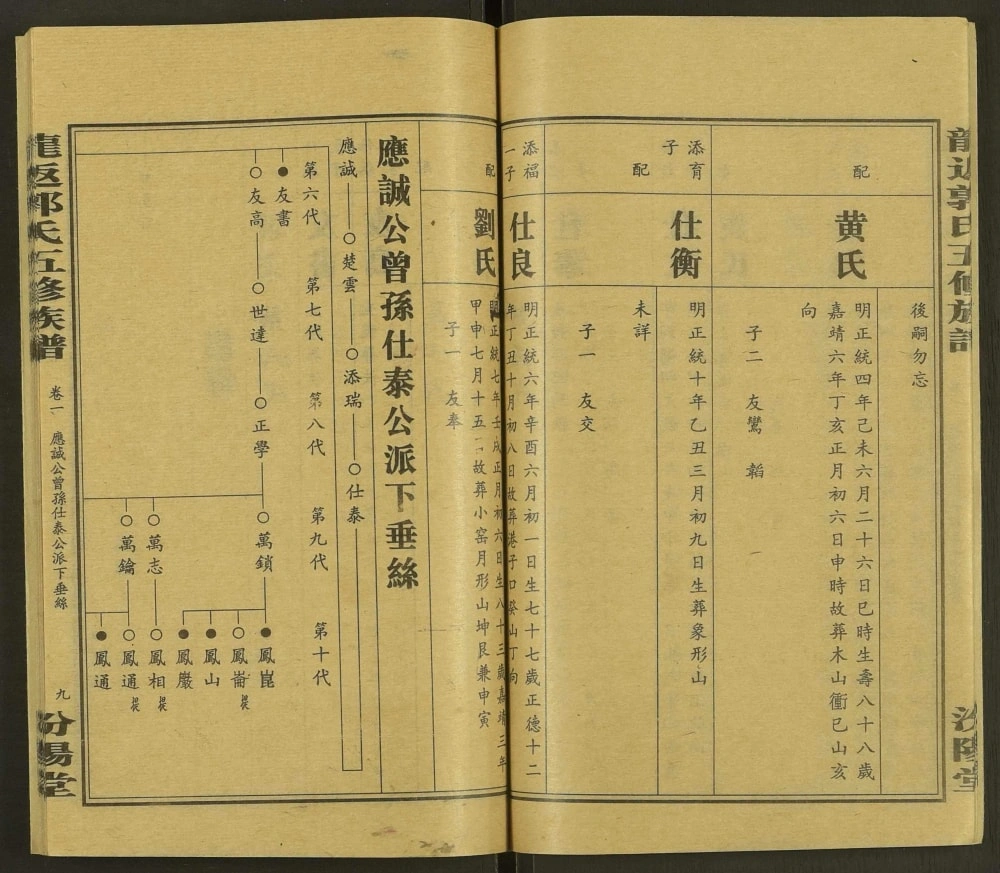 後嗣勿忘
配
黃氏
明正統四年己未六月二十六日巳時生壽八十八歲
嘉靖六年丁亥正月初六日申時故葬木山衝巳山亥
向
子二 友鸞 韜
添育
子
配
仕衡
明正統十年乙丑三月初九日生葬象形山
未詳
子一 友交
添福
一子
仕良
明正統六年辛酉六月初一日生七十七歲正德十二
年丁丑十月初八日故葬港子口癸山丁向
配
劉氏
正統七年壬戌正月初六日生八十三歲嘉靖三年
甲申七月十五 故葬小窑月形山坤艮兼申寅
子一 友奉
應誠公曾孫仕泰公派下垂絲
應誠 楚雲 添瑞 仕泰
第六代 第七代 第八代 第九代 第十代
友書
友高 世達 正學
萬鎖
萬志
萬鑰
鳳崑
鳳崙
鳳山
鳳巖
鳳相
鳳通
鳳通
龍返郭氏五修族譜
卷一 應誠公曾孫仕泰公派下垂絲
九
汾陽堂
龍返郭氏五修族譜
汾陽堂